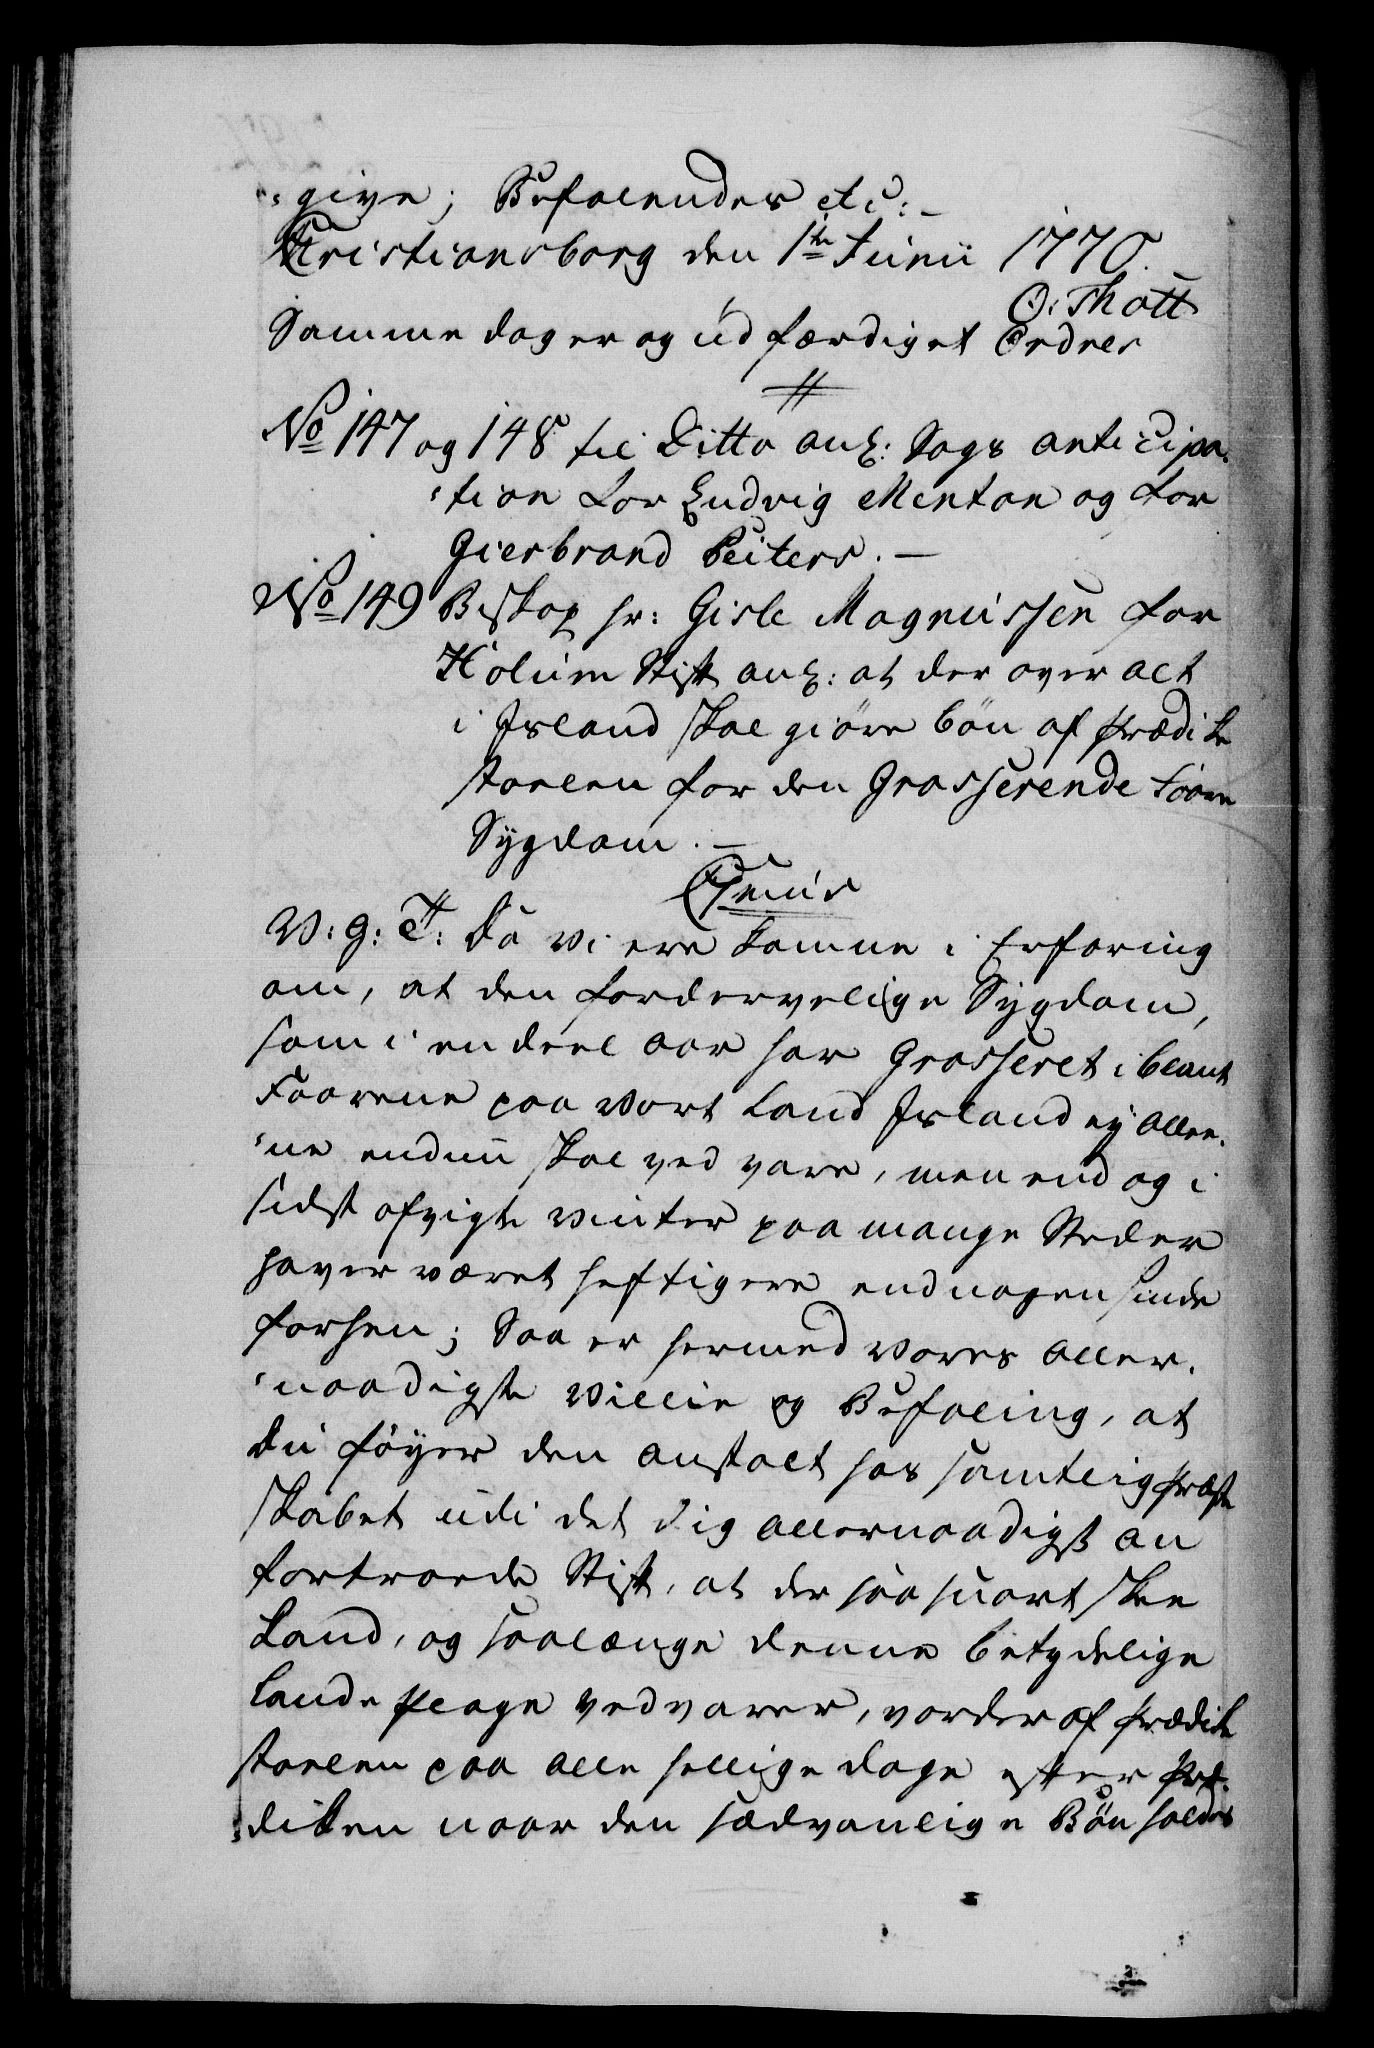 :give; Befalendes etc: -
Christiansborg den 1te Junii 1770.
O: Thott
Samme dag er og udfærdiget Ordres
No 147 og 148 til Ditto anl: Sags anticipa:
:tion for Ludvig Menton og for
Gierbrand Peiters. —
No 149 Biskop hr: Gisle Magnussen for
Holum Stift anl: at der over alt
i Island skal giøre bøn af Prædike
stoelen for den Grasserende Faare
Sygdom. —
V: G: T: Da Vi ere komne i Erfaring
om, at den fordervelige Sygdom,
som i en deel Aar har Grasseret iblant
Faarene paa Vort Land Island ey allee:
:ne endnu skal ved vare, men end og i
sidst afvigte Vinter paa mange Steder
haver været heftigere end nogensinde
forhen; Saa er hermed Vores aller:
:naadigste Villie og Befaling, at
Du føyer den Anstalt hos samtlig Præste
skabet udi det Dig allernaadigst an
fortroede Stift, at der saa snart skee
kand, og saalænge denne betydelige
Lande Plage vedvarer, vorder af Prædike
stoelen paa alle hellige dage efter Præ:
:diken naar den sædvanlige Bøn holdes